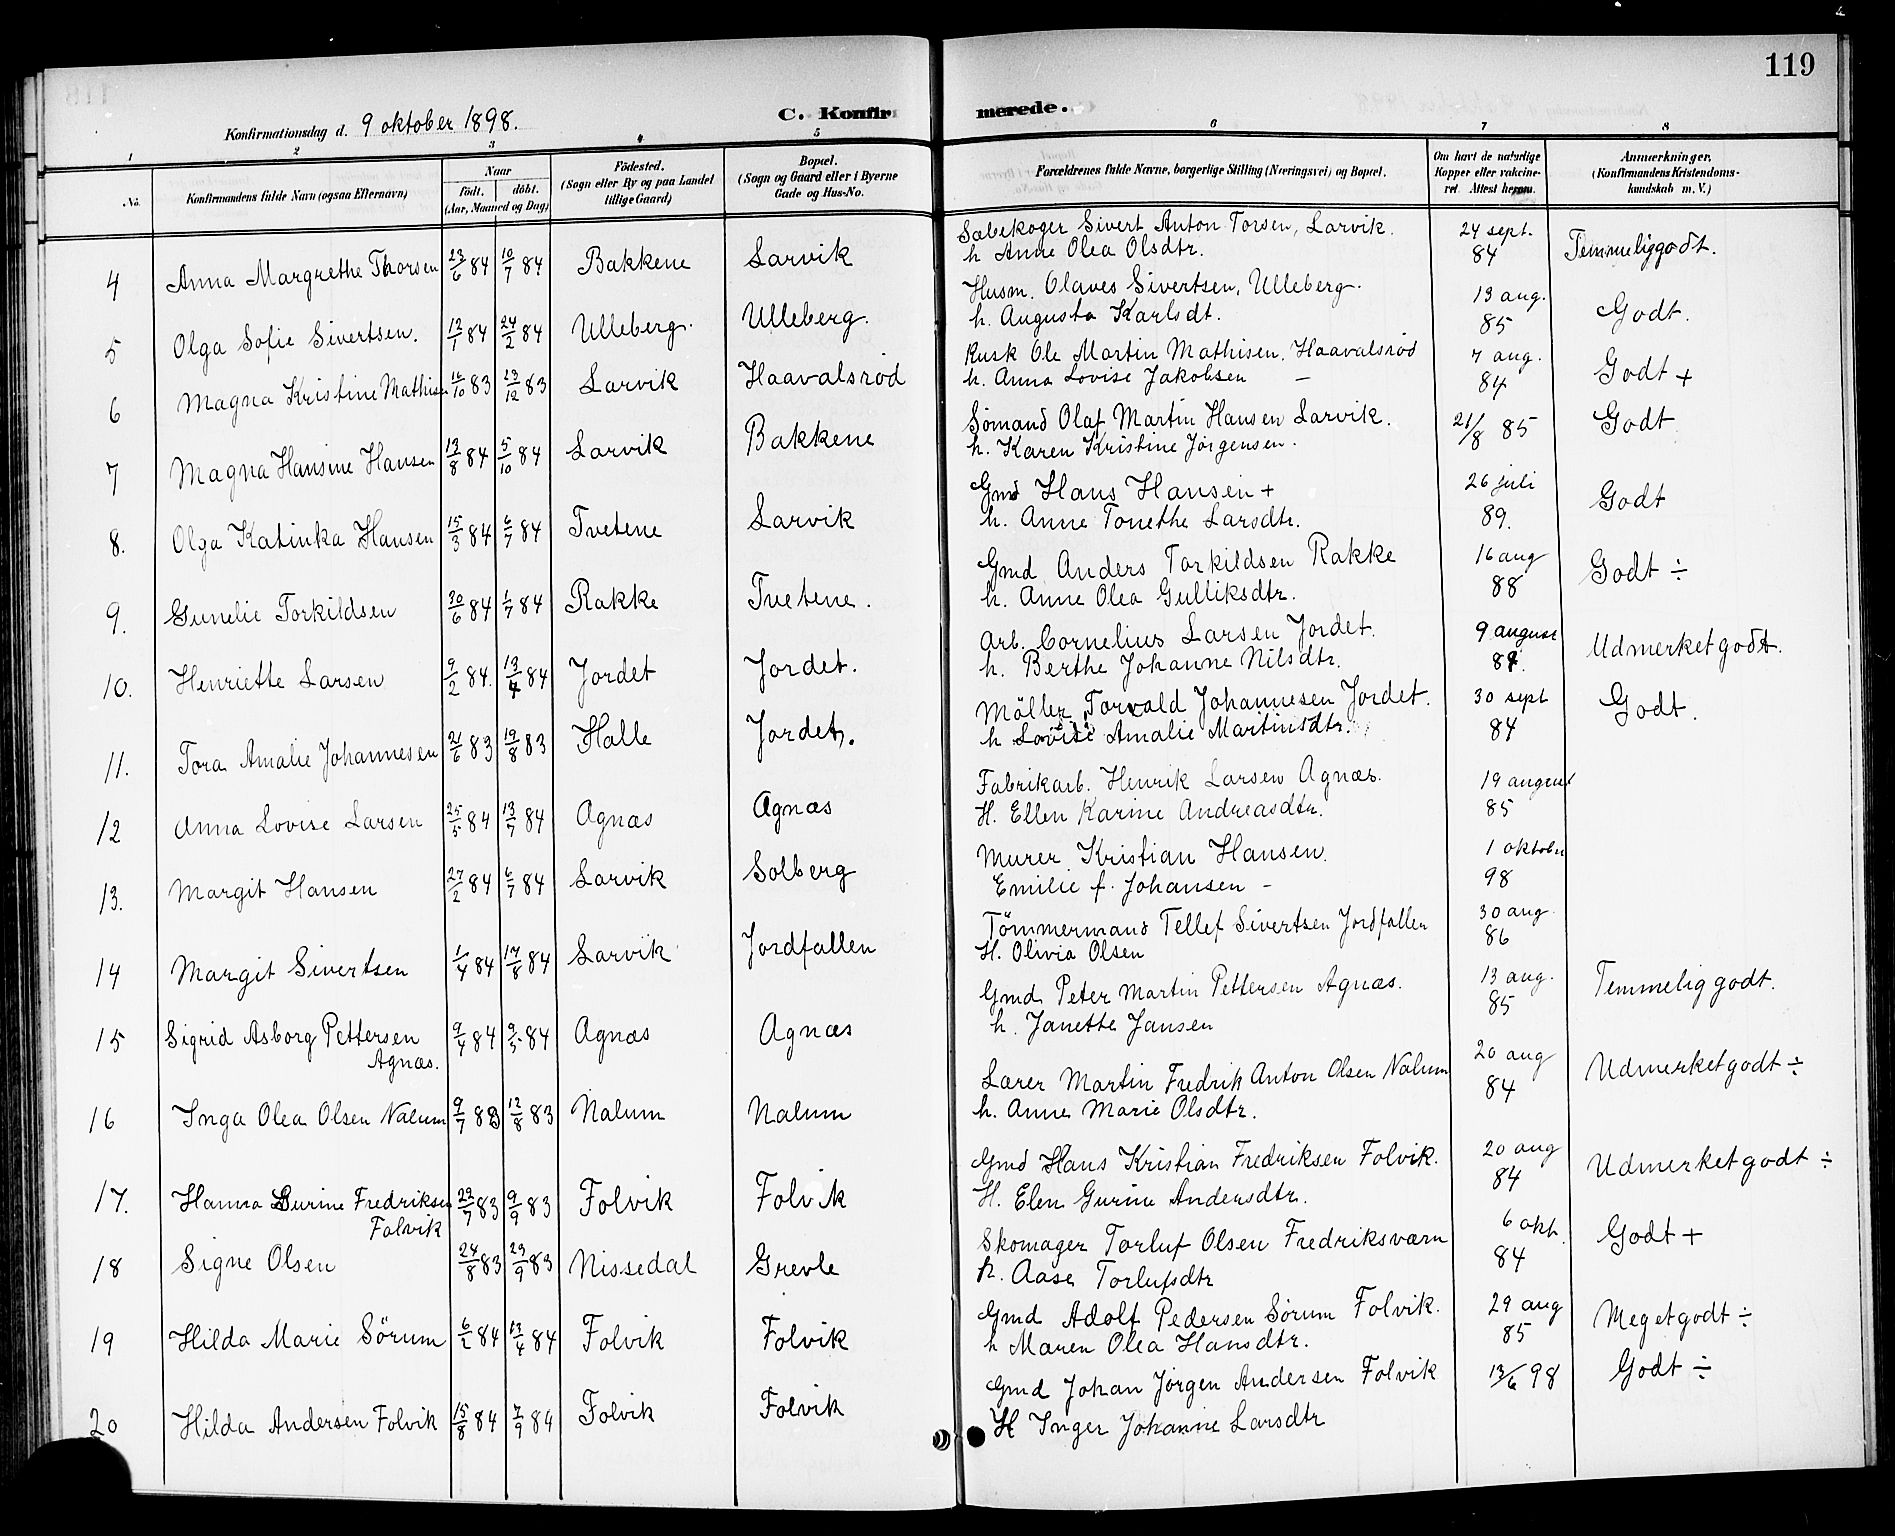 119
Konfirmationsdag d. 9 oktober 1898.
C. Konfirmerede.
1 2 3 4 5 6 7 8
No.
Konfirmandens fulde Navn (ogsaa Efternavn)
Naar
födt. döbt.
(Aar, Maaned og Dag)
Födested.
(Sogn eller By og paa Landet
tillige Gaard)
Bopæl.
(Sogn og Gaard eller i Byerne
Gade og Hus-No.
Forældrenes fulde Navne, borgerlige Stilling (Næringsvei) og Bopæl.
Om havt de naturlige
Kopper eller vakcine-
ret. Attest herom.
Anmærkninger.
(Konfirmandens Kristendoms-
kundskab m. V.)
4 Anna Margrethe Thorsen 23/6 84 10/7 84 Bakkene Larvik Sæbekoger Sivert Anton Torsen, Larvik. 24 sept.
h Anne Olea Olsdtr. 84 Temmelig godt.
5 Olga Sofie Sivertsen. 12/1 84 24/2 84 Ulleberg. Ulleberg. Husm. Olaves Sivertsen, Ulleberg. 13 aug.
h. Augusta Karlsdt. 85 Godt.
6 Magna Kristine Mathisen 16/10 83 23/12 83 Larvik Haavalsröd Kusk Ole Martin Mathisen, Haavalsröd 7 aug.
h. Anna Lovise Jakobsen — 84 Godt +
7 Magna Hansine Hansen 13/8 84 5/10 84 Larvik Bakkene Sömand Olaf Martin Hansen Larvik. 21/8 85 Godt
h. Karen Kristine Jörgensen.
8. Olga Katinka Hansen 15/3 84 6/7 84 Tvetene Larvik Gmd Hans Hansen + 26 juli
h. Anne Tonethe Larsdtr. 89. Godt
9. Gunelie Torkildsen 30/6 84 1/7 84 Rakke Tvetene. Gmd Anders Torkildsen Rakke 16 aug
h. Anne Olea Gulliksdtr. 88 Godt ÷
10. Henriette Larsen 9/2 84. 13/4 84 Jordet Jordet. Arb. Cornelius Larsen Jordet. 9 august
h. Berthe Johanne Nilsdtr. Udmerket godt.
11. Tora Amalie Johannesen 21/6 83 19/8 83 Halle Jordet. Möller Torvald Johannesen Jordet. 30 sept
h Lovise Amalie Martinsdtr. 84 Godt.
12 Anna Lovise Larsen 25/5 84 13/7 84 Agnæs Agnæs Fabrikarb. Henrik Larsen Agnæs. 19 august
H. Ellen Karine Andreasdtr. 85
13. Margit Hansen 27/2 84 6/7 84 Larvik Solberg Murer Kristian Hansen. 1 oktober
Emilie f. Johansen – 98
14 Margit Sivertsen 1/4 84 17/8 84 Larvik Jordfallen Tömmermand Tellef Sivertsen Jordfallen 30 aug.
H. Olivia Olsen 86
15 Sigrid Asborg Pettersen 9/4 84 9/5 84 Agnæs Agnæs Gmd. Peter Martin Pettersen Agnæs. 13 aug.
Agnæs. h. Janette Jansen 85 Temmelig godt.
16 Inga Olea Olsen Nalum 9/7 83 12/8 83 Nalum Nalum Lærer Martin Fredrik Anton Olsen Nalum 20 aug
h. Anne Marie Olsdtr. 84 Udmerket godt ÷
17. Hanna Gurine Fredriksen 22/7 83 9/9 83 Folvik Folvik Gmd Hans Kristian Fredriksen Folvik. 20 aug
Folvik H. Elen Gurine Andersdtr. 84 Udmerket godt ÷
18 Signe Olsen 24/8 83 23/9 83 Nissedal Grevle Skomager Torluf Olsen Fredriksværn 6 okt.
h. Aase Torlufsdtr 84 Godt +
19 Hilda Marie Sörum 6/2 84 13/4 84 Folvik Folvik Gmd Adolf Pedersen Sörum Folvik. 29 aug
h Maren Olea Hansdtr. 85 Meget godt ÷
20 Hilda Andersen Folvik 15/8 84 7/9 84 Folvik Folvik Gmd Johan Jörgen Andersen Folvik 13/6 98 Godt ÷
H Inger Johanne Larsdtr